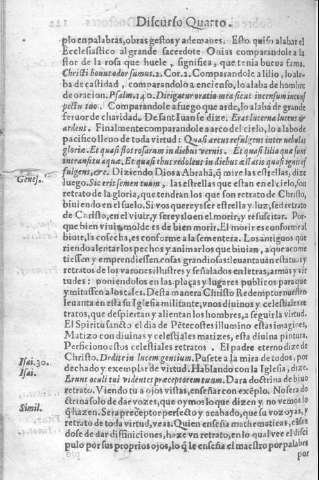 Discurso Quarto.
plo en palabras, obras gestos y ademanes. Esto quiso alabar el
Ecclesiastico al grande sacerdote Onias comparandole a la
flor de la rosa que huele, significa, que tenia buena fama.
Christi bonus odor sumus. 2. Cor. 2. Comparandole a lilio, lo ala-
ba de castidad, comparandolo a encienso, lo alaba de hombre
de oracion. Psalm. 140. Dirigatur oratio mea sicut incensum in cõspectu tuo. Comparandole a fuego que arde, lo alaba de grande
feruor de charidad. De sant Iuan se dize. Erat lucerna lucens &
ardens. Finalmente comparandole a arco del cielo, lo alaba de
pacifico lleno de toda virtud. Quasi arcus refulgens inter nebulas
gloriæ. Et quasi flos rosarum in diebus vernis. Et quasi lilia quæ sunt
in transitu aquæ. Et quasi thus redolens in diebus æstatis quasi ignis ef
fulgens, &c. Diziendo Dios a Abrahã, q̃ mire las estrellas, dize
Genes.
luego. Sic erit semen tuum, las estrellas que estan en el cielo, son
retrato de la gloria, que tendran los que son retrato de Christo,
biuiendo en el suelo. Si vos quereys ser estrella y luz, sed retrato
de Christo, en el viuir, y sereys lo en el morir, y resuscitar. Por
que bien viuir, molde es de bien morir. El morir es conforme al
biuir, la cosecha, es conforme a la sementera. Los antiguos que
riendo alentar los pechos y animar los que biuian, a que acome
tiessen y emprendiessen cosas grandiosas: leuantauan estatuas y
retratos de los varones illustres y señalados en letras, armas y vir
tudes: poniendolos en las plaças y lugares publicos para que
ymitassen a los tales. Desta manera Christo Redemptor nuestro
leuanta en esta su Iglesia militante, vnos diuinos y celestiales re
tratos, que despiertan y alientan los hombres, a seguir la virtud.
El Spiritu sancto el dia de Pẽtecostes illumino estas imagines,
Matizo con diuinas y celestiales matizes, esta diuina pintura.
Perficionò estos celestiales retratos. El padre eterno dize de
Isai. 30.
Christo. Dedit te in lucem gentium. Pusete a la mira de todos, por
Isai.
dechado y exemplar de virtud. Hablando con la Iglesia, dize.
Erunt oculi tui videntes præceptorem tuum. Dara doctrina de biuo
retrato. Viendo tu a ojo vistas, enseñar con exẽplo. No sera do
Simil.
ctrina solo de dar vozes, que oymos lo que dizen y no vemos lo
q̃ hazen. Sera preceptor perfecto y acabado, que su voz oyas, y
retrato de toda virtud, veas. Quien enseña mathematicas,
dose de dar diffiniciones, haze vn retrato, en lo qual vee el disci
pulo por sus proprios ojos, lo q̃ le enseña el maestro por palabras
por